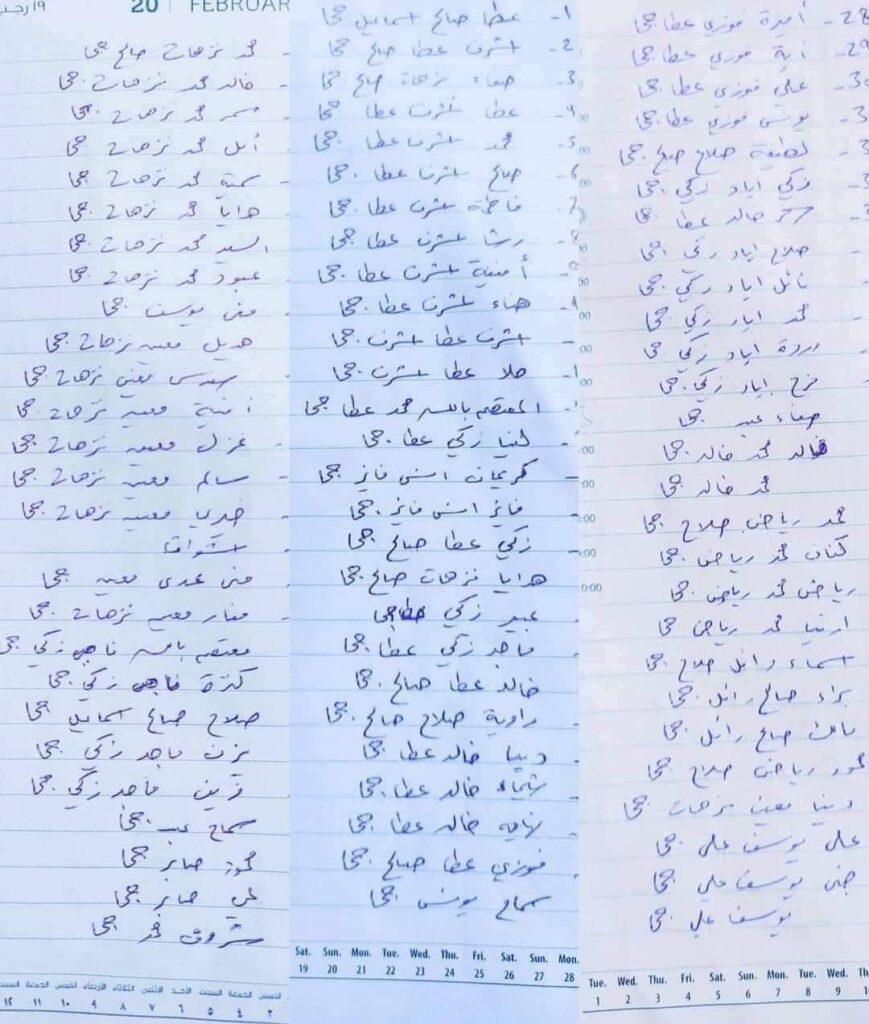 1- عطا صالح اسماعيل جحا
2- اشرف عطا صالح جحا
3- صفاء نزهات صالح جحا
4- عطا اشرف عطا جحا
5- محمد اشرف عطا جحا
6- صالح اشرف عطا جحا
7- فاطمة اشرف عطا جحا
8- رشا اشرف عطا جحا
9- أمنية اشرف عطا جحا
هناء اشرف عطا جحا
- اشرف عطا اشرف جحا
حلا عطا اشرف جحا
المعتصم بالله محمد عطا جحا
لينا زكي عطا جحا
- كريمان انس فايز جحا
- فايز انس فايز جحا
- زكي عطا صالح جحا
- هدايا نزهات صالح جحا
- عبير زكي عطا جحا
- ماجد زكي عطا جحا
- خالد عطا صالح جحا
- راوية صلاح صالح جحا
- دينا خالد عطا جحا
- شيماء خالد عطا جحا
- خالد عطا جحا
- فوزي عطا صالح جحا
سماح يونس جحا
Sat. Sun. Mon. Tue. Wed. Thu. Fri. Sat. Sun. Mon.
19 20 21 22 23 24 25 26 27 28
28- أميرة فوزي عطا جحا
29- آية فوزي عطا جحا
علي فوزي عطا جحا
يونس فوزي عطا جحا
لطيفة صلاح صالح جحا
زكي اياد زكي جحا
خالد عطا جحا
صلاح اياد زكي جحا
نائل اياد زكي جحا
محمد اياد زكي جحا
وردة اياد زكي جحا
فرح اياد زكي جحا
صفاء عبد جحا
خالد محمد خالد جحا
محمد خالد جحا
محمد رياض صلاح جحا
كنان محمد رياض جحا
رياض محمد رياض جحا
محمد رياض جحا
اسماء وائل صلاح جحا
براء صالح وائل جحا
صالح وائل جحا
رياض صلاح جحا
دينا معين نزهات جحا
علي يوسف علي جحا
جنى يوسف علي جحا
يوسف علي جحا
Tue. Wed. Thu. Fri. Sat. Sun. Mon. Tue. Wed. Th
1 2 3 4 5 6 7 8 9
20 FEBRUAR
١٩ رجب
- محمد نزهات صالح جحا
- خالد محمد نزهات جحا
- سمر محمد نزهات جحا
- أمل محمد نزهات جحا
- سمية محمد نزهات جحا
- هدايا محمد نزهات جحا
- السيد محمد نزهات جحا
- عبود محمد نزهات جحا
- منى يوسف جحا
هديل معين نزهات جحا
سندس معين نزهات جحا
- أمنية معين نزهات جحا
- غزل معين نزهات جحا
- سالم معين نزهات جحا
- معين نزهات جحا
- اشواق
منى عدي معين جحا
- منار معين نزهات جحا
معتصم بالله ماجد زكي جحا
ماجد زكي جحا
صلاح صالح اسماعيل جحا
يزن ماجد زكي جحا
زين ماجد زكي جحا
سماح عبد جحا
صابر جحا
علي صابر جحا
شروق محمد جحا
الخميس الجمعة السبت الأحد الاثنين الثلاثاء الأربعاء الخميس الجمعة السبت
٣ ٤ ٥ ٦ ٧ ٨ ٩ ١٠ ١١ ١٢